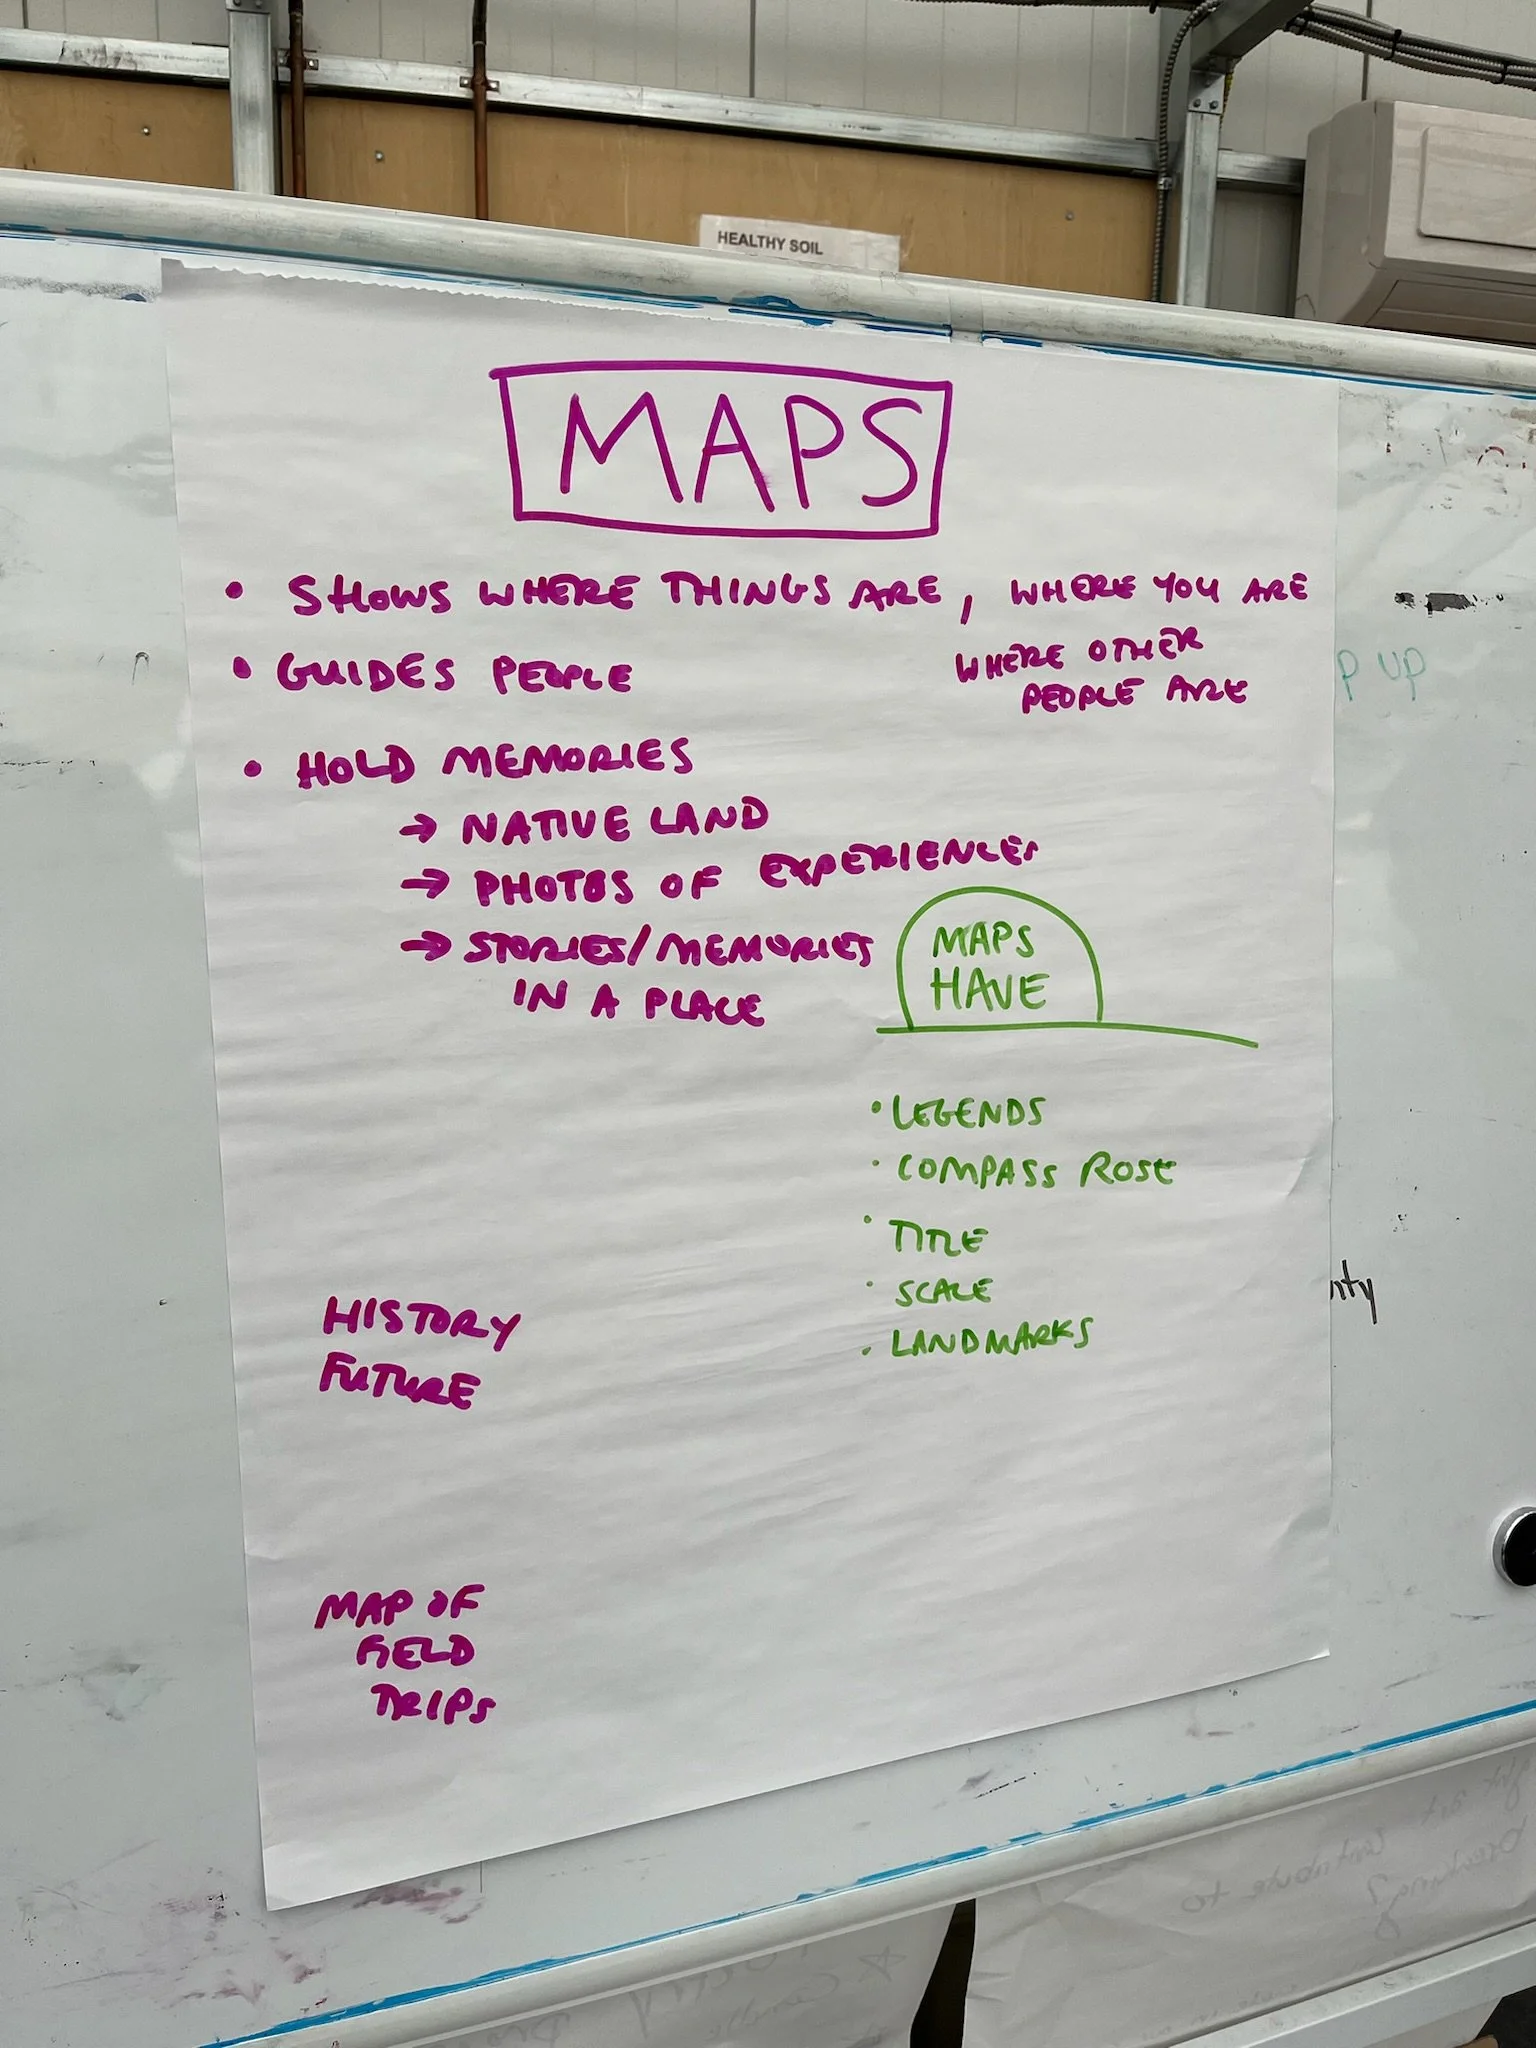 HEALTHY SOIL
MAPS
• SHOWS WHERE THINGS ARE, WHERE YOU ARE
WHERE OTHER
PEOPLE ARE
• GUIDES PEOPLE
• HOLD MEMORIES
→ NATIVE LAND
→ PHOTOS OF EXPERIENCES
→ STORIES/MEMORIES
IN A PLACE
MAPS
HAVE
• LEGENDS
• COMPASS ROSE
• TITLE
• SCALE
• LANDMARKS
HISTORY
FUTURE
MAP OF
FIELD
TRIPS
P UP
nty